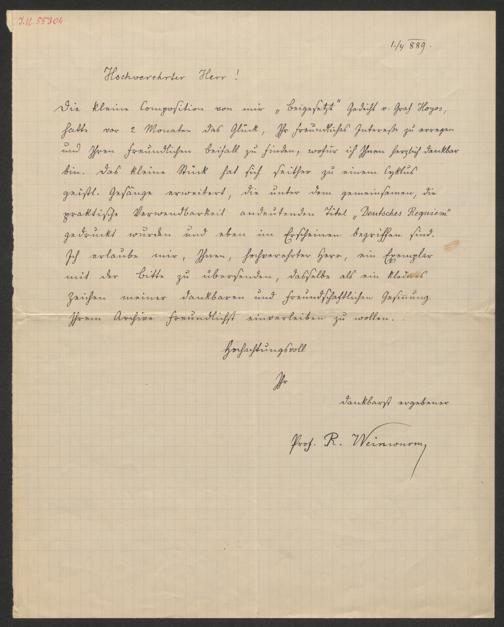 I.N. 55304
1/4 889.
Hochverehrter Herr!
Die kleine Composition von mir „Beigesetzt" Gedicht v. Graf Hoyos,
hatte vor 2 Monaten das Glück, Ihr freundliches Interesse zu erregen
und Ihren freundlichen Beifall zu finden, wofür ich Ihnen herzlich dankbar
bin. Das kleine Stück hat sich seither zu einem Cyklus
geistl. Gesänge erweitert, die unter dem gemeinsamen, die
praktische Verwendbarkeit andeutenden Titel „Deutsches Requiem"
gedruckt wurden und eben im Erscheinen begriffen sind.
Ich erlaube mir, Ihnen, hochverehrter Herr, ein Exemplar
mit der Bitte zu übersenden, dasselbe als ein kleines
Zeichen meiner dankbaren und freundschaftlichen Gesinnung
Ihrem Archive freundlichst einverleiben zu wollen.
Hochachtungsvoll
Ihr
dankbarst ergebener
Prof. R. Weinwurm